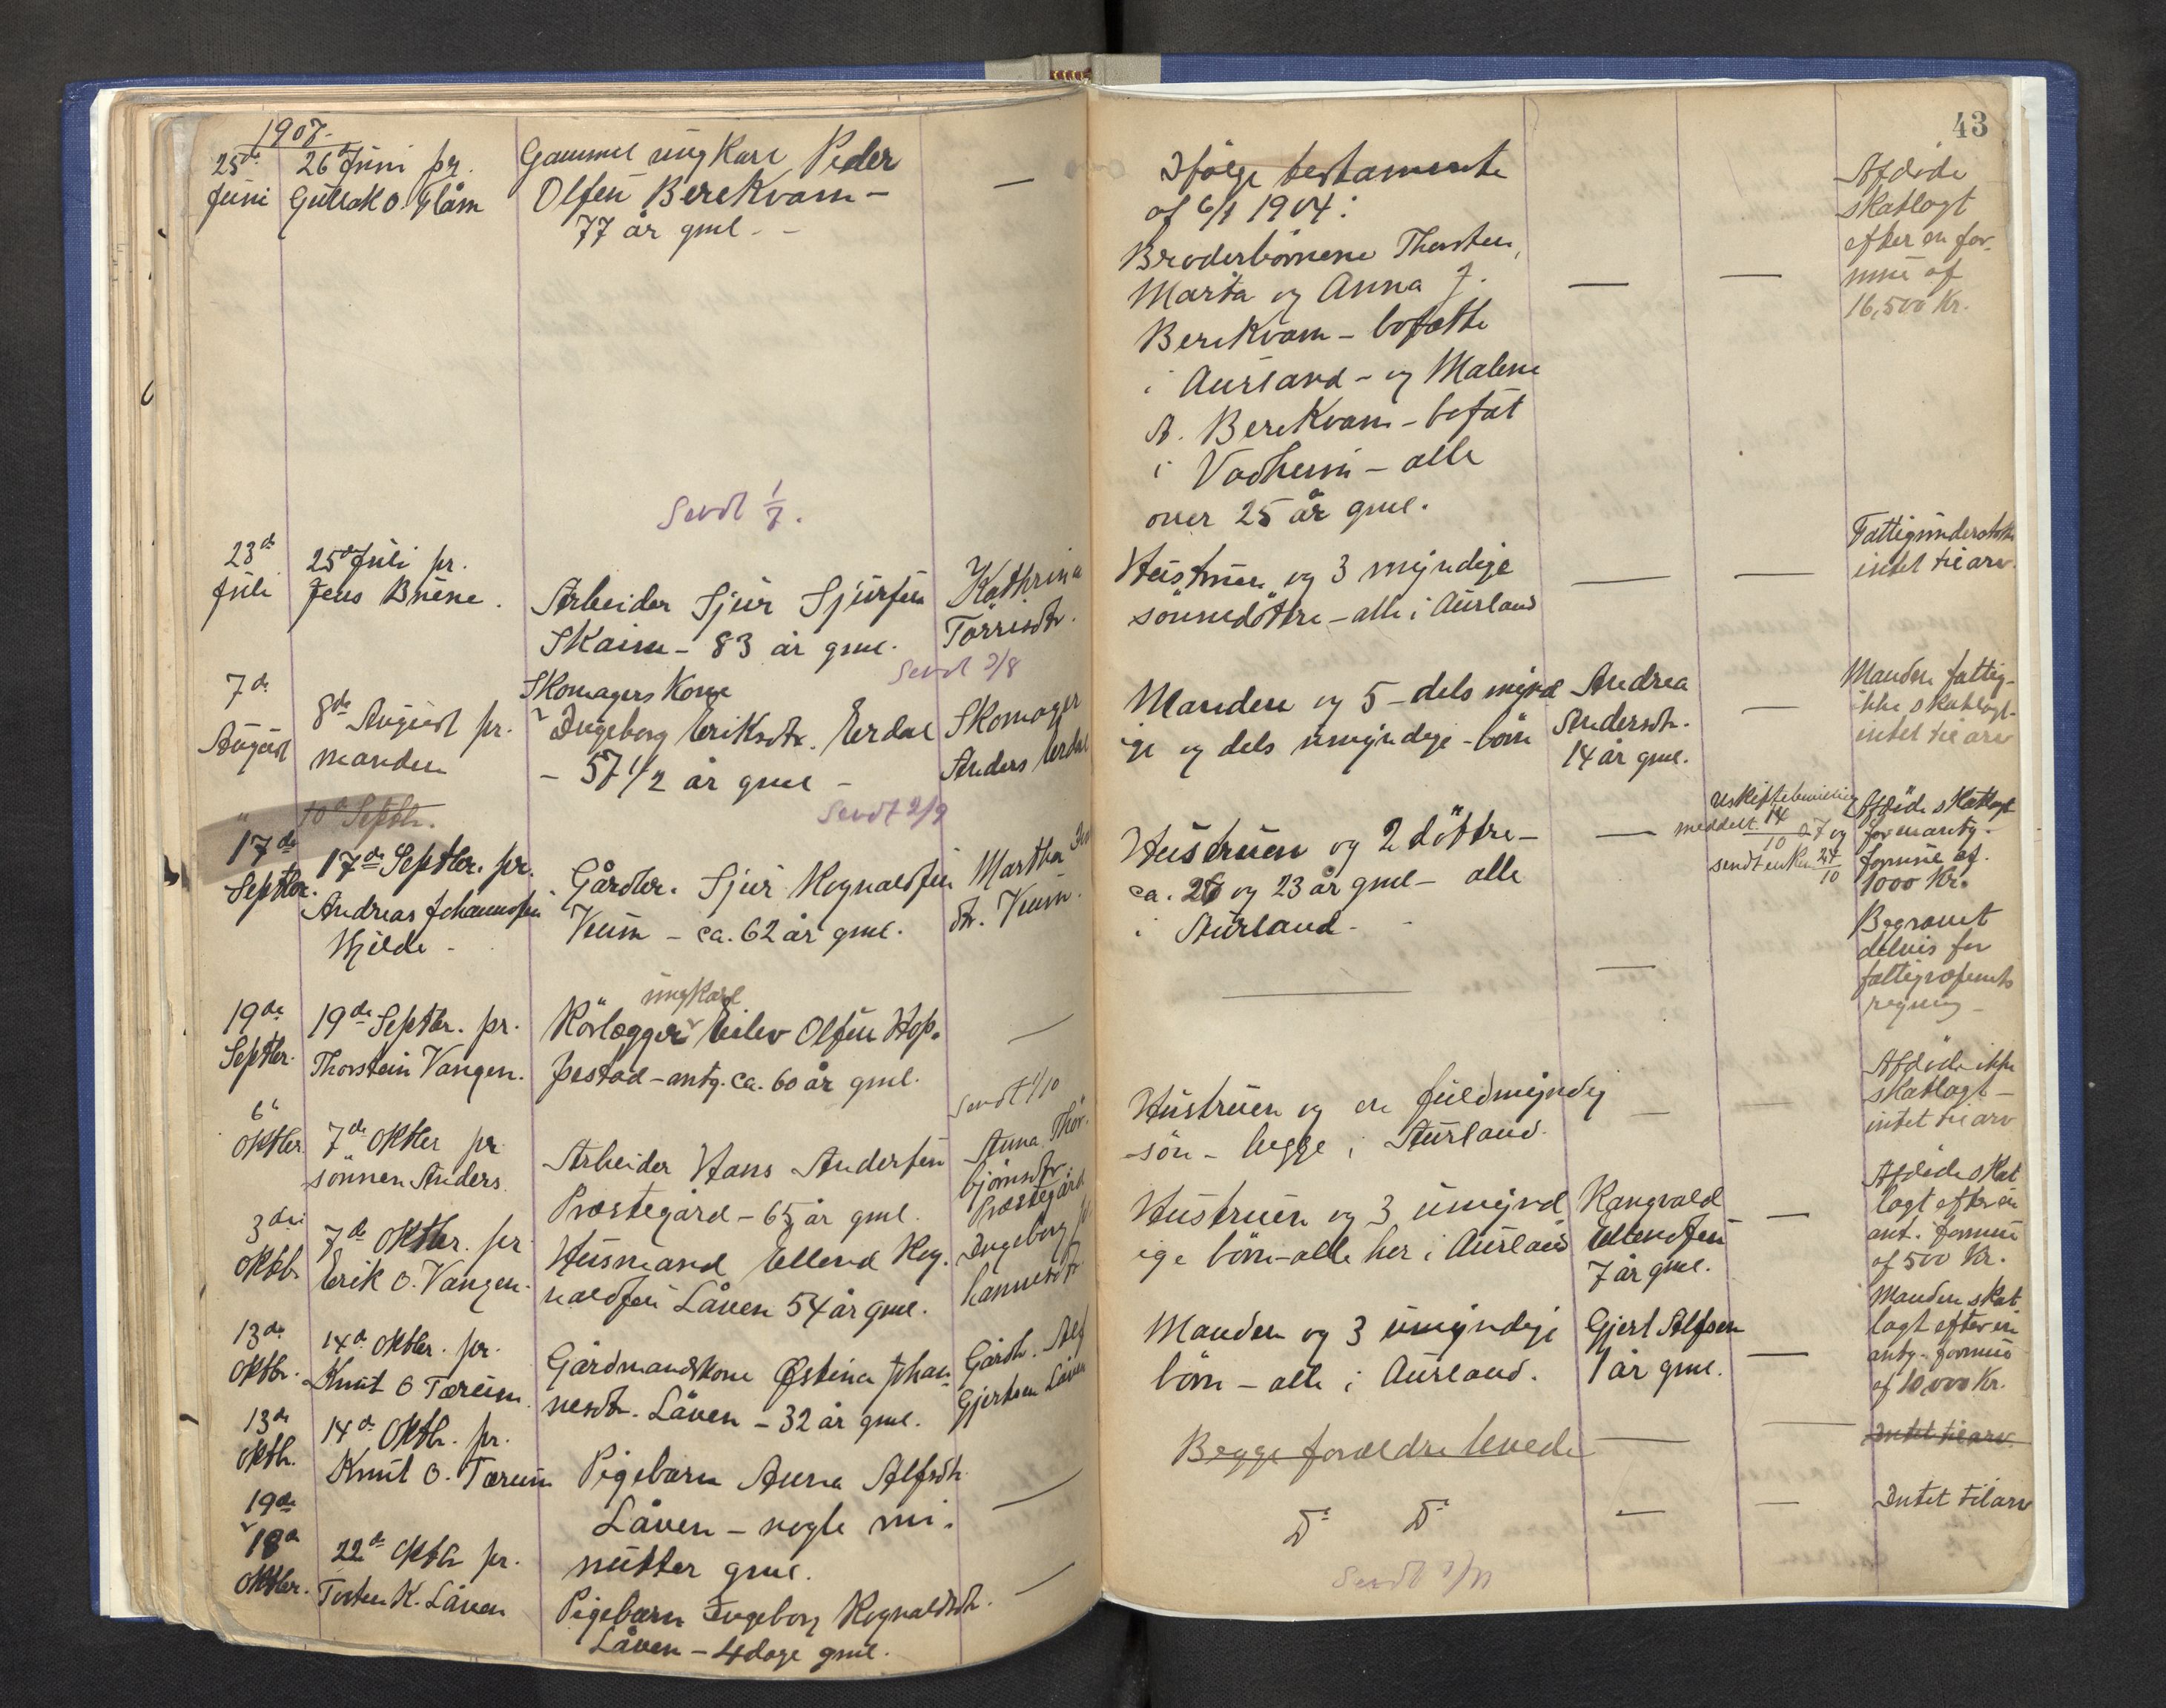 1907.
25de
Juni
26de Juni pr.
Gullak O. Flåm
Gammel ungkarl Peder
Olsen Berekvam –
77 år gml. –
—
Sendt 1/7.
23de
Juli
25de Juli pr.
Jens Brüne.
Arbeider Sjur Sjursen
Skaim – 83 år gml.
Kathrina
Torrisdtr.
Sendt 2/8
7de
August
8de August pr.
manden
Skomagers Kone
Ingeborg Eriksdtr. Erdal
– 57 1/2 år gml –
Skomager
Anders Erdal
Sendt 2/9
" 10de Septbr.
17de
Septbr.
17de Septbr. pr.
Andreas Johannesen
Hjilde –
Gårdbr. Sjur Rognaldsen
Veum – ca. 62 år gml.
Martha
dtr. Veum.
19de
Septbr.
19de Septbr. pr.
Thorstein Vangen.
ungkarl
Rörlægger Eilev Olsen Hop-
pestad – antg. ca. 60 år gml.
—
Sendt 1/10
6te
Oktbr.
7de Oktbr pr
sönnen Anders.
Arbeider Hans Andersen
Præstegård – 65 år gml.
Anna Thor-
björnsdtr
Præstegård
3die
Oktb.
7de Oktbr. pr
Erik O. Vangen.
Husmand Ellend Rog-
naldsen Låven 54 år gml.
Ingeborg Jo
hannesdtr
13de
Oktbr.
14de Oktbr. pr.
Knut O Tærum.
Gårdmandskone Østina Johan-
nesdtr. Låven – 32 år gml.
Gårdb. Alf
Gjertsen Låven
13de
Oktb.
14de Oktb. pr.
Knut O. Tærum
Pigebarn Anna Alfsdtr.
Låven – nogle mi-
nutter gml.
—
19de
18de
Oktbr.
22de Oktb pr.
Torsten K. Låven
Pigebarn Ingeborg Rognaldsdtr.
Låven – 4 dage gml.
—
43
Ifølge testamente
af 6/1 1904:
Broderbörnene Thorsten,
Marta og Anna J.
Berekvam – bosatte
i Aurland – og Malene
A. Berekvam – bosat
i Vadheim – alle
over 25 år gml.
—
—
Afdöde
skatlagt
efter en for-
mue af
16,500 Kr.
Hustruen og 3 myndige
sönnedöttre – alle i Aurland
—
—
Fattigunderstøtte
intet til arv.
Manden og 5 – dels mynd
ige og dels umyndige – börn
Andrea
Andersdtr.
14 år gml.
—
Manden fattig-
ikke skatlagt-
intet til arv
Hustruen og 2 döttre –
ca. 26 og 23 år gml – alle
i Aurland –
—
uskiftebevilling
meddelt 14/10 07 og
sendt enken 24/10
Afdöde skatlagt
for en antg.
formue af
1000 Kr.
—
—
Begravet
delvis for
fattigvæsenets
regning –
Hustruen og en fuldmyndig
sön – begge i Aurland.
—
—
Afdöde ikke
skatlagt –
intet til arv
Hustruen og 3 umynd
ige börn – alle her i Aurland
Rangvald
Ellendsen
7 år gml.
—
Afdöde skat
lagt efter en
ant. formue
af 500 Kr.
Manden og 3 umyndige
börn – alle i Aurland.
Gjert Alfsen
1 år gml.
—
Manden skat
lagt efter en
antg. formue
af 10,000 Kr.
Begge forældre levede
—
—
Intet til arv.
Do Do
—
—
Intet til arv
Sendt 1/11